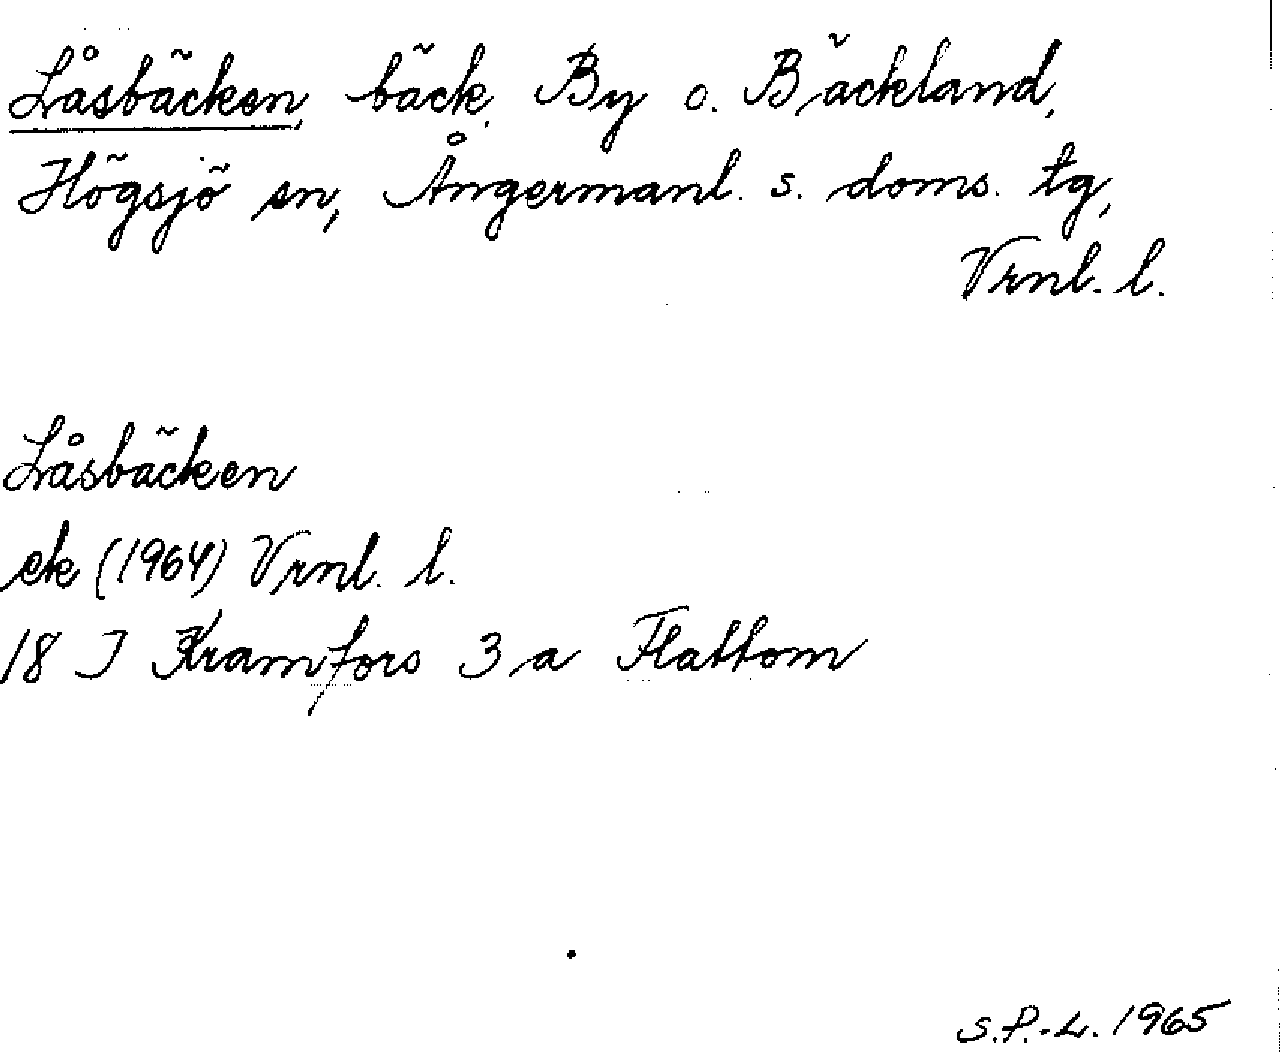 Låsbäcken, bäck, By o. Bäckland,
Högsjö sn, Ångermanl. s. doms. tg,
Vrnl. l.
Låsbäcken
ek (1964) Vrnl. l.
18 I Kramfors 3 a Flattom
S.P.-L. 1965